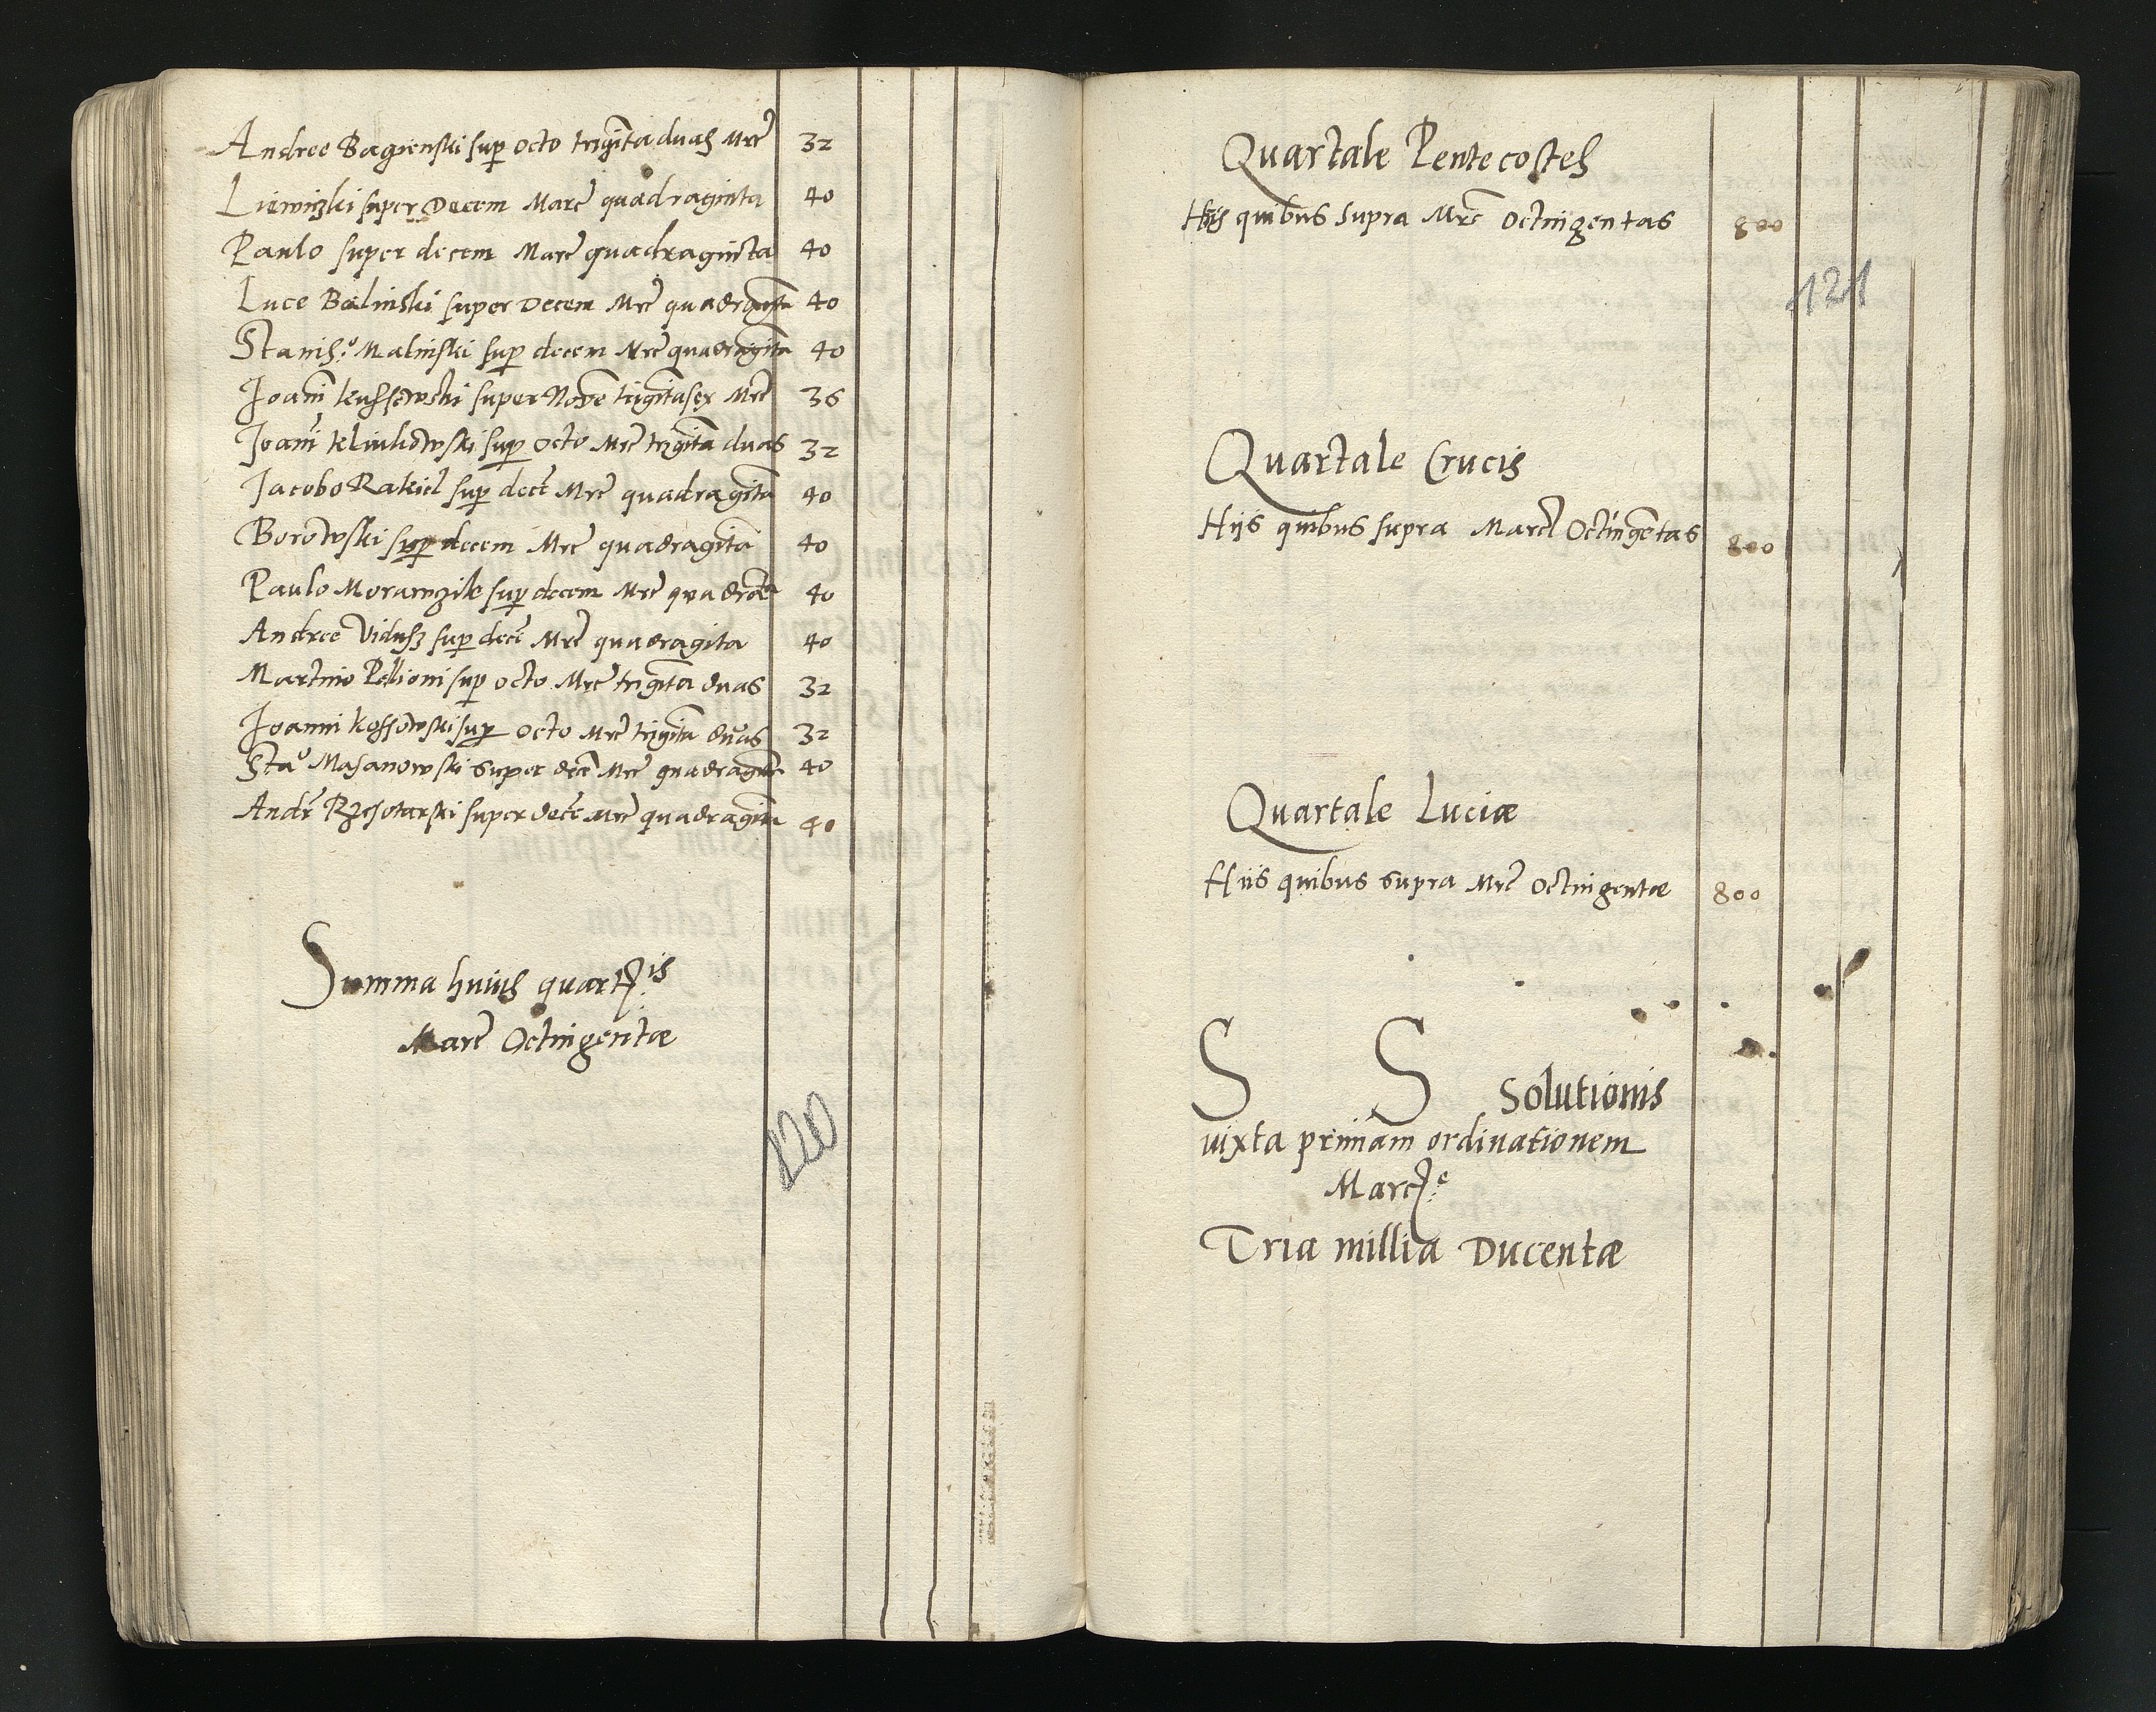 Andree Bagienski sup octo trigīta duas Mrc 32
super Decem Marc quadraginta 40
Paulo super decem Marc quadraginta 40
Luce Balinski super Decem Mrc quadraginta 40
Stanisº Malinski sup decem Mrc quadragīta 40
Joanī Kussowski super Nove trigīta sex Mrc 36
Joanī Kliukowski sup octo Mrc trigīta duas 32
Jacobo Rakiel sup decē Mrc quadragīta 40
Borowski sup decem Mrc quadragīta 40
Paulo sup decem Mrc 40
Andree Vidusz sup decē Mrc quadragita 40
Martino Pellioni sup octo Mrc trigīta duas 32
Joanni Kossowski sup octo Mrc trigīta duas 32
Staº Masanowski super decē Mrc quadragīta 40
Andr super decē Mrc quadragīta 40
Summa huius quartlis
Marc Octingentæ
120
Quartale Pentecostes
Hiis quibus supra Mrc octingentas 800
121
Quartale Crucis
Hijs quibus supra Marc Octingētas 800
Quartale Luciæ
Hiis quibus supra Mrc octingentæ 800
S S Solutionis
iuxta primam ordinationem
Marcę
Tria millia Ducentæ